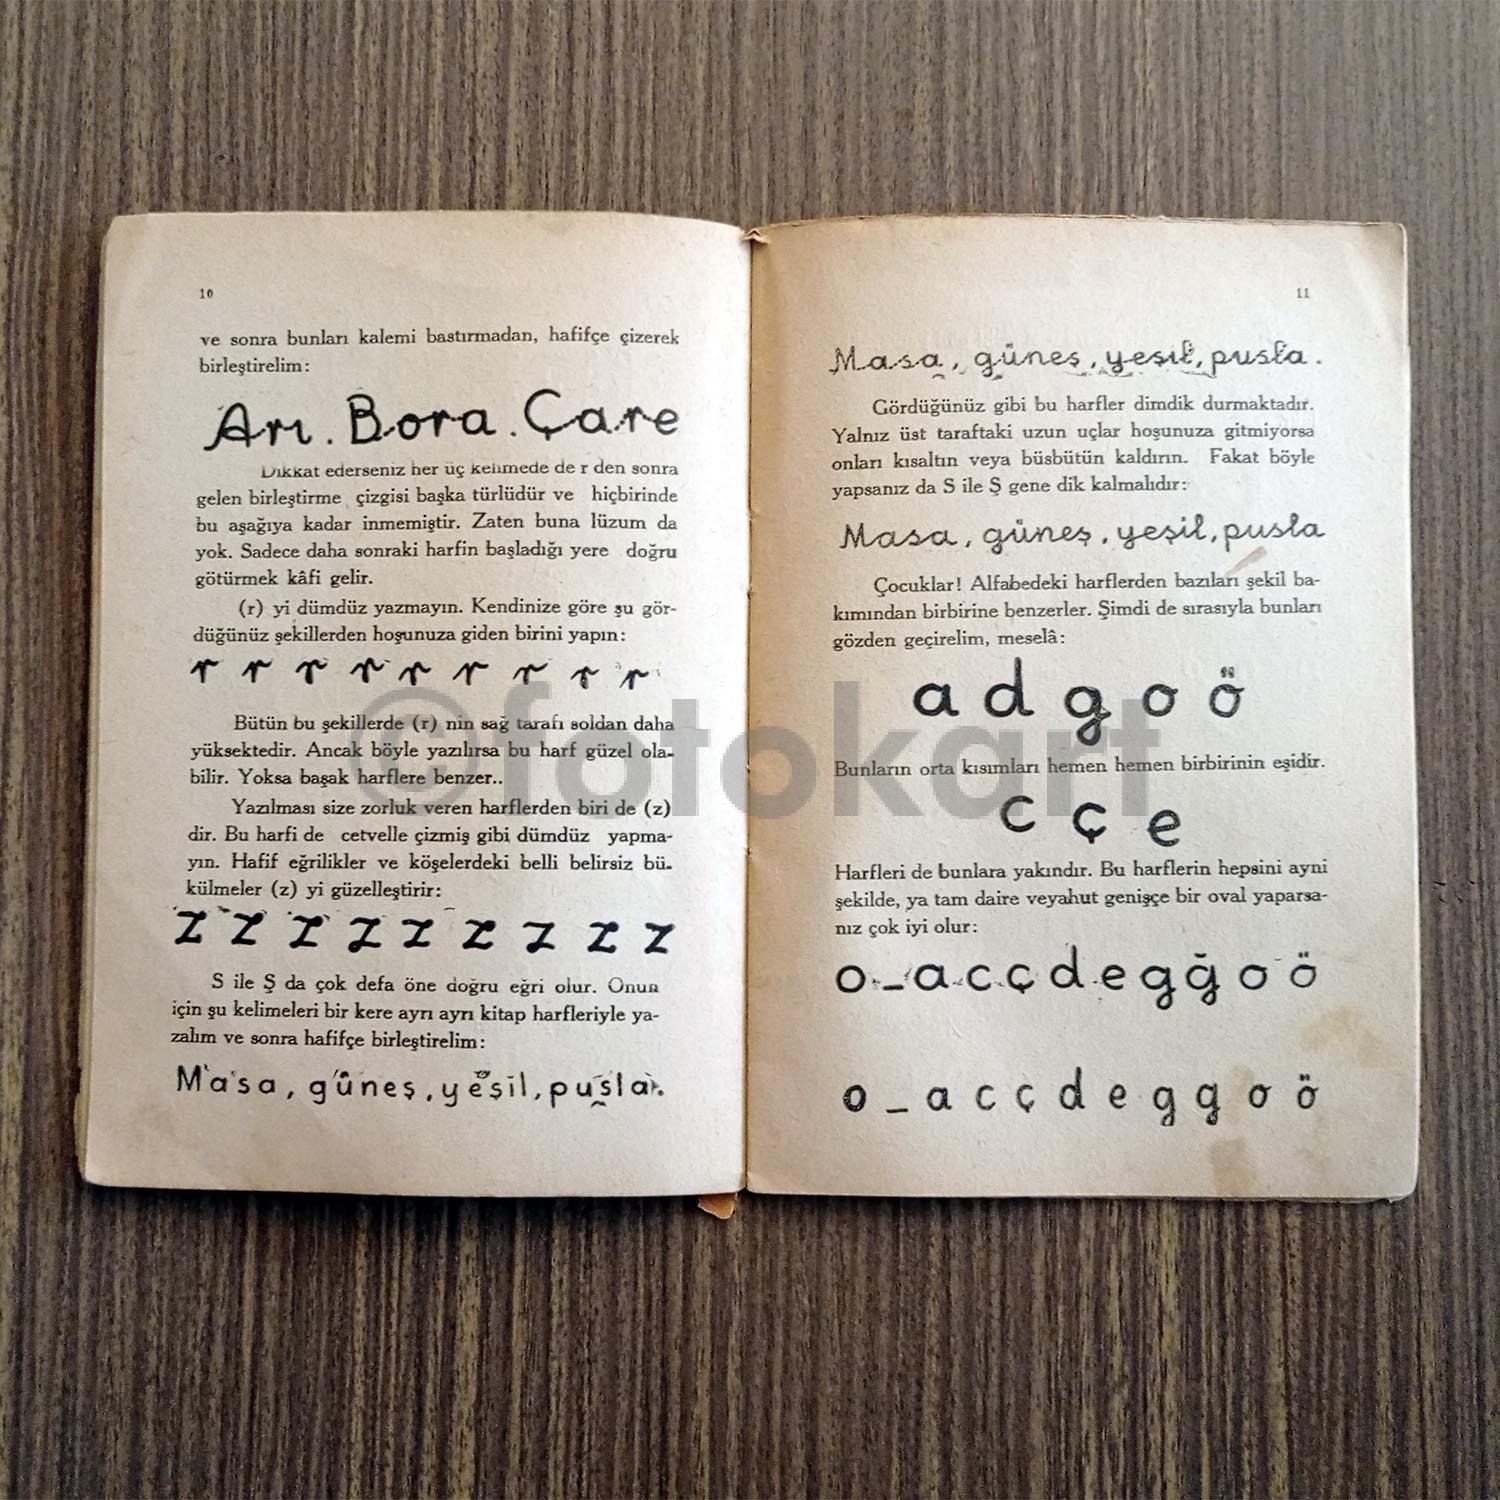 10
ve sonra bunları kalemi bastırmadan, hafifçe çizerek
birleştirelim:
Arı . Bora . Çare
Dikkat ederseniz her üç kelimede de r den sonra
gelen birleştirme çizgisi başka türlüdür ve hiçbirinde
bu aşağıya kadar inmemiştir. Zaten buna lüzum da
yok. Sadece daha sonraki harfin başladığı yere doğru
götürmek kâfi gelir.
(r) yi dümdüz yazmayın. Kendinize göre şu gör-
düğünüz şekillerden hoşunuza giden birini yapın:
r r r r r r r r r
Bütün bu şekillerde (r) nin sağ tarafı soldan daha
yüksektedir. Ancak böyle yazılırsa bu harf güzel ola-
bilir. Yoksa başak harflere benzer..
Yazılması size zorluk veren harflerden biri de (z)
dir. Bu harfi de cetvelle çizmiş gibi dümdüz yapma-
yın. Hafif eğrilikler ve köşelerdeki belli belirsiz bü-
külmeler (z) yi güzelleştirir:
z z z z z z z z z
S ile Ş da çok defa öne doğru eğri olur. Onun
için şu kelimeleri bir kere ayrı ayrı kitap harfleriyle ya-
zalım ve sonra hafifçe birleştirelim:
Masa, güneş, yeşil, pusla.
11
Masa, güneş, yeşil, pusla.
Gördüğünüz gibi bu harfler dimdik durmaktadır.
Yalnız üst taraftaki uzun uçlar hoşunuza gitmiyorsa
onları kısaltın veya büsbütün kaldırın. Fakat böyle
yapsanız da S ile Ş gene dik kalmalıdır:
Masa, güneş, yeşil, pusla
Çocuklar! Alfabedeki harflerden bazıları şekil ba-
kımından birbirine benzerler. Şimdi de sırasıyla bunları
gözden geçirelim, meselâ:
a d g o ö
Bunların orta kısımları hemen hemen birbirinin eşidir.
c ç e
Harfleri de bunlara yakındır. Bu harflerin hepsini ayni
şekilde, ya tam daire veyahut genişçe bir oval yaparsa-
nız çok iyi olur:
o _ a c ç d e g ğ o ö
o _ a c ç d e g g o ö
©fotokart